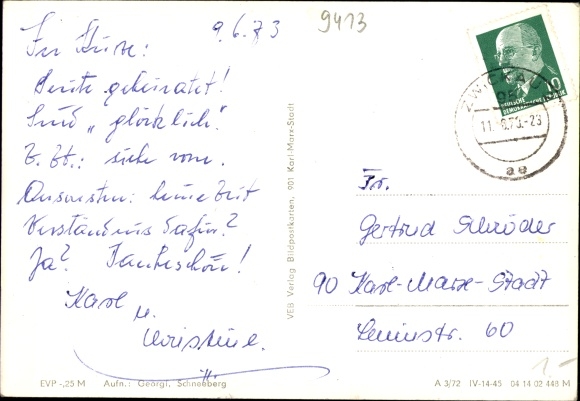 9.6.73
9413
In Kürze:
Heute geheiratet!
Sind „glücklich“.
Z. Zt.: siehe vorn.
Ansonsten: keine Zeit
Verständnis dafür?
Ja? Dankeschön!
Karl
u.
Christine.
EVP -,25 M Aufn.: Georgi, Schneeberg
VEB Verlag Bildpostkarten, 901 Karl-Marx-Stadt
10
DEUTSCHE
DEMOKRATISCHE
ZWICKAU
11. 6.73.-23
ae
Fr.
Gertrud Schröder
90 Karl-Marx-Stadt
Leninstr. 60
1.-
A 3/72 IV-14-45 04 14 02 448 M